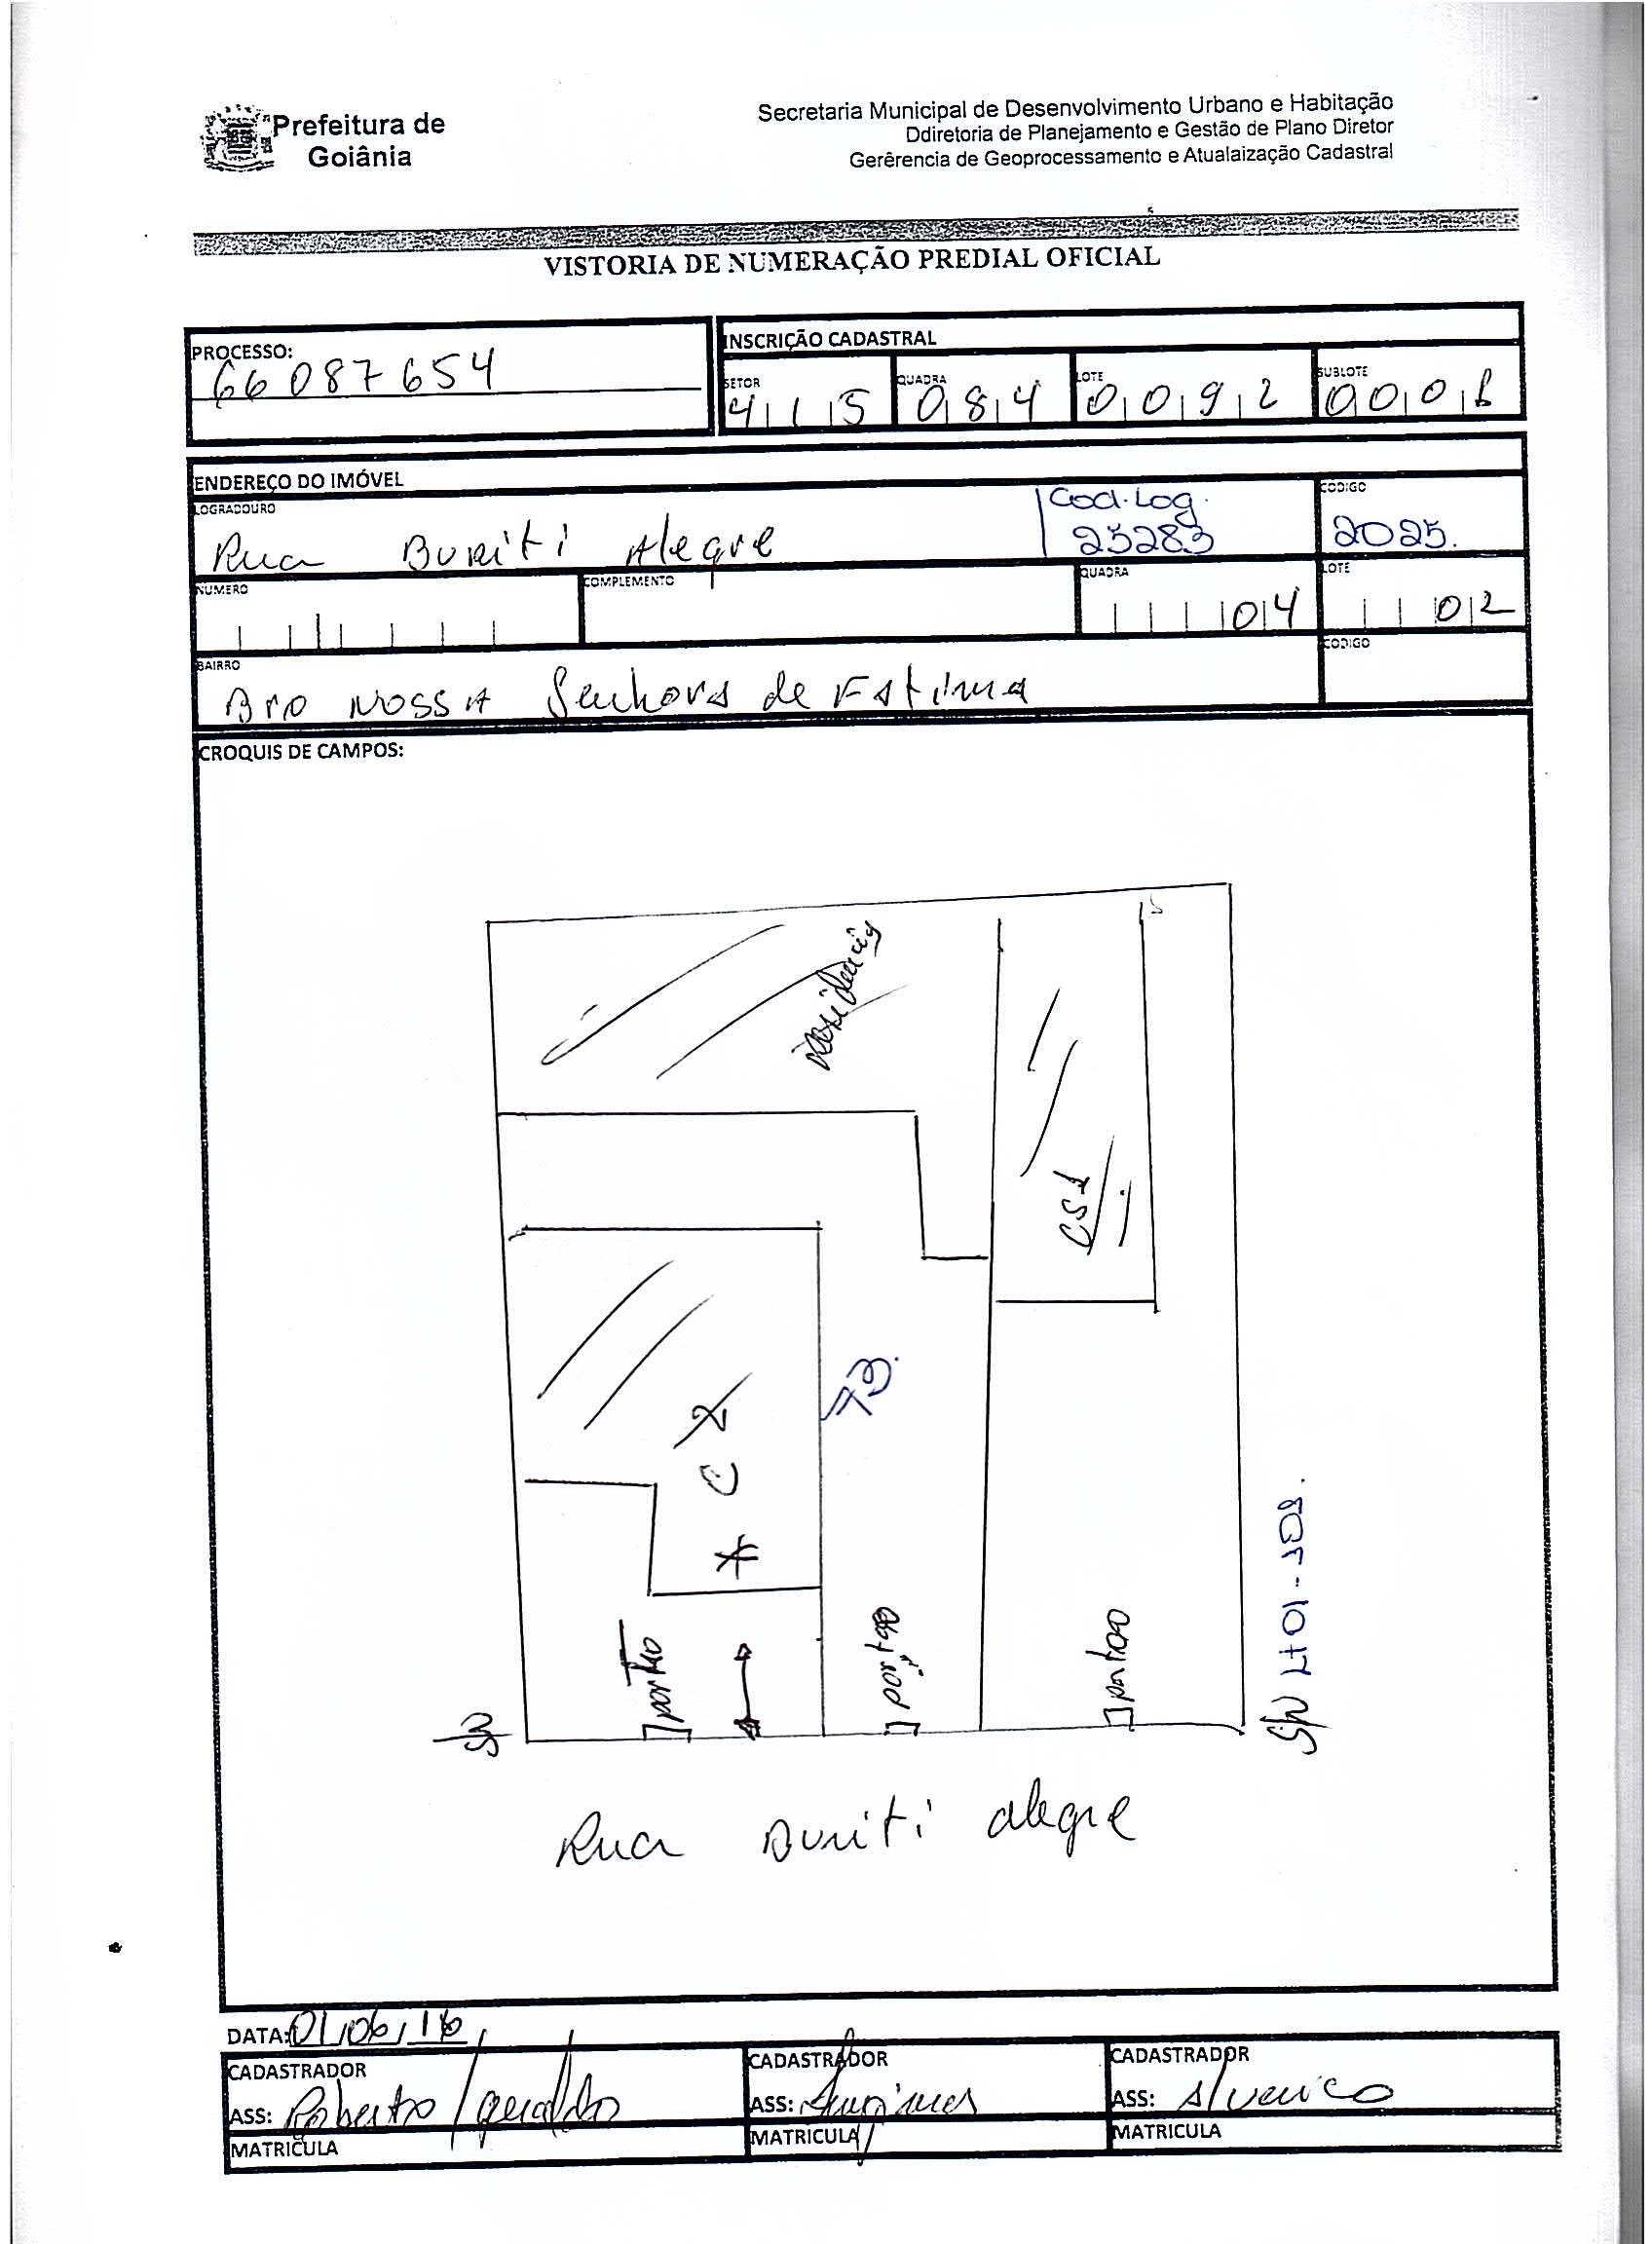 Prefeitura de
Goiânia
Secretaria Municipal de Desenvolvimento Urbano e Habitação
Ddiretoria de Planejamento e Gestão de Plano Diretor
Gerêrencia de Geoprocessamento e Atualaização Cadastral
VISTORIA DE NUMERAÇÃO PREDIAL OFICIAL
PROCESSO:
66087654
INSCRIÇÃO CADASTRAL
SETOR QUADRA LOTE SUBLOTE
415 084 0092 000
ENDEREÇO DO IMÓVEL
LOGRADOURO Cod. Log. CODIGO
Rua Buriti Alegre 25283 2025.
NUMERO COMPLEMENTO QUADRA LOTE
04 02
BAIRRO CODIGO
Bro Nossa Senhora de Fatima
CROQUIS DE CAMPOS:
residencia
CS1
73.
C 2
A
portão
portão
portao
LT01-
Rua Buriti alegre
DATA: 01/06/16
CADASTRADOR CADASTRADOR CADASTRADOR
ASS: Roberto / geraldo ASS: ASS:
MATRICULA MATRICULA MATRICULA